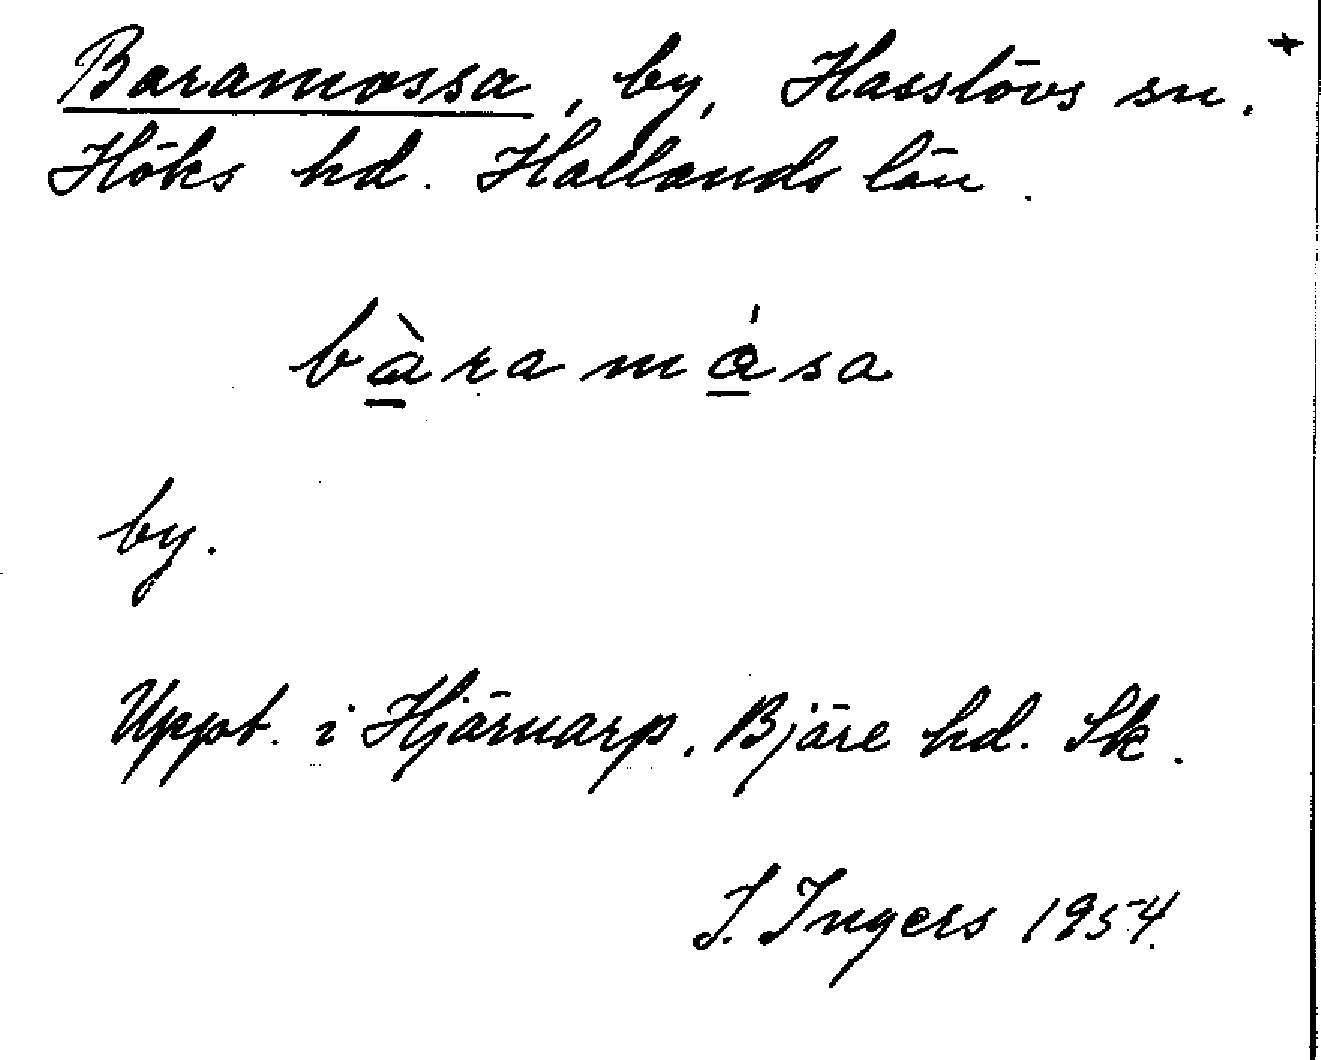 Baramossa, by, Hasslövs sn. +
Höks hd. Hallands län.
bàramása
by.
Uppt. i Hjärnarp, Bjäre hd. Sk.
I. Ingers 1954.